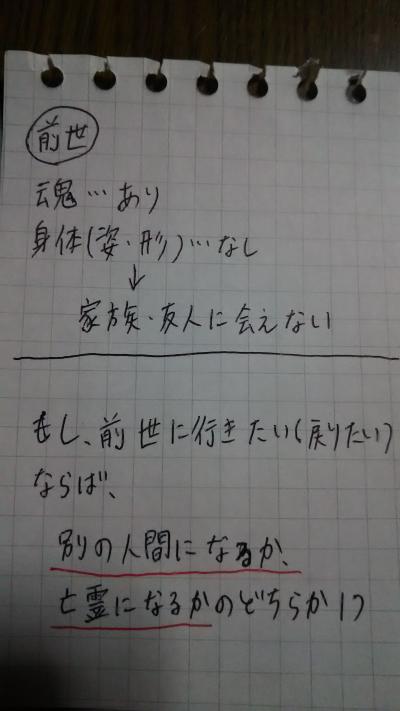 前世
魂…あり
身体(姿・形)…なし
↓
家族・友人に会えない
もし、前世に行きたい(戻りたい)
ならば、
別の人間になるか、
亡霊になるかのどちらか!?